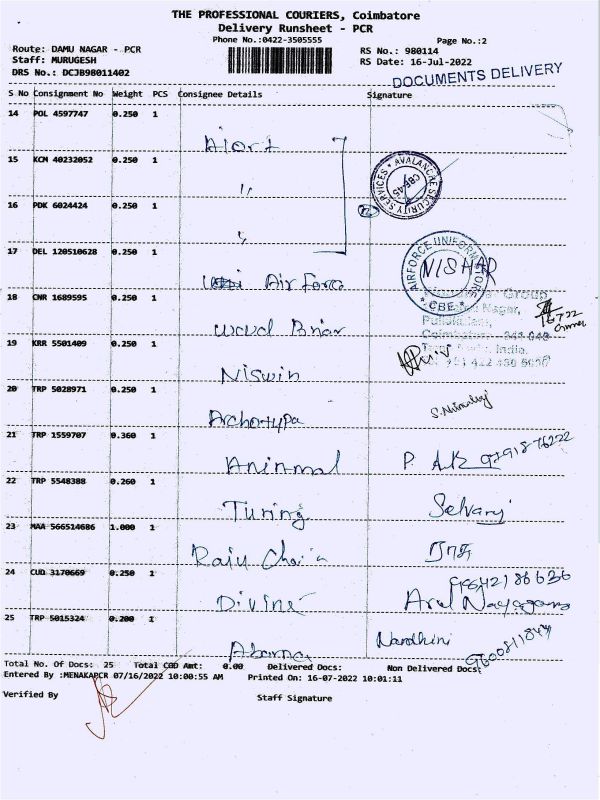 THE PROFESSIONAL COURIERS, Coimbatore
Delivery Runsheet - PCR
Phone No.:0422-3505555
Page No.:2
Route: DAMU NAGAR - PCR
RS No.: 980114
Staff: MURUGESH
RS Date: 16-Jul-2022
DRS No.: DCJB98011402
DOCUMENTS DELIVERY
S No Consignment No Weight PCS Consignee Details Signature
14 POL 4597747 0.250 1
Alort
15 KCM 40232052 0.250 1
"
AVALANCHE SECURITY SERVICES
CBE-45
16 PDK 6024424 0.250 1
"
17 DEL 120510628 0.250 1
Air Force
AIRFORCE UNIFORM STORE
NISHAR
* CBE *
18 CNR 1689595 0.250 1
Group
Nagar,
16722
19 KRR 5501409 0.250 1
Niswin
India.
20 TRP 5028971 0.250 1
Archotypa
21 TRP 1559707 0.360 1
Aninmal
P.
22 TRP 5548388 0.260 1
Turing
Selvaraj
23 MAA 566514686 1.000 1
Raju
24 CUD 3170669 0.250 1
Divine
Arul Nayagam
25 TRP 5015324 0.200 1
Abarna
Nandhini
Total No. Of Docs: 25 Total COD Amt: 0.00 Delivered Docs: Non Delivered Docs:
Entered By :MENAKAPCR 07/16/2022 10:00:55 AM Printed On: 16-07-2022 10:01:11
Verified By
Staff Signature